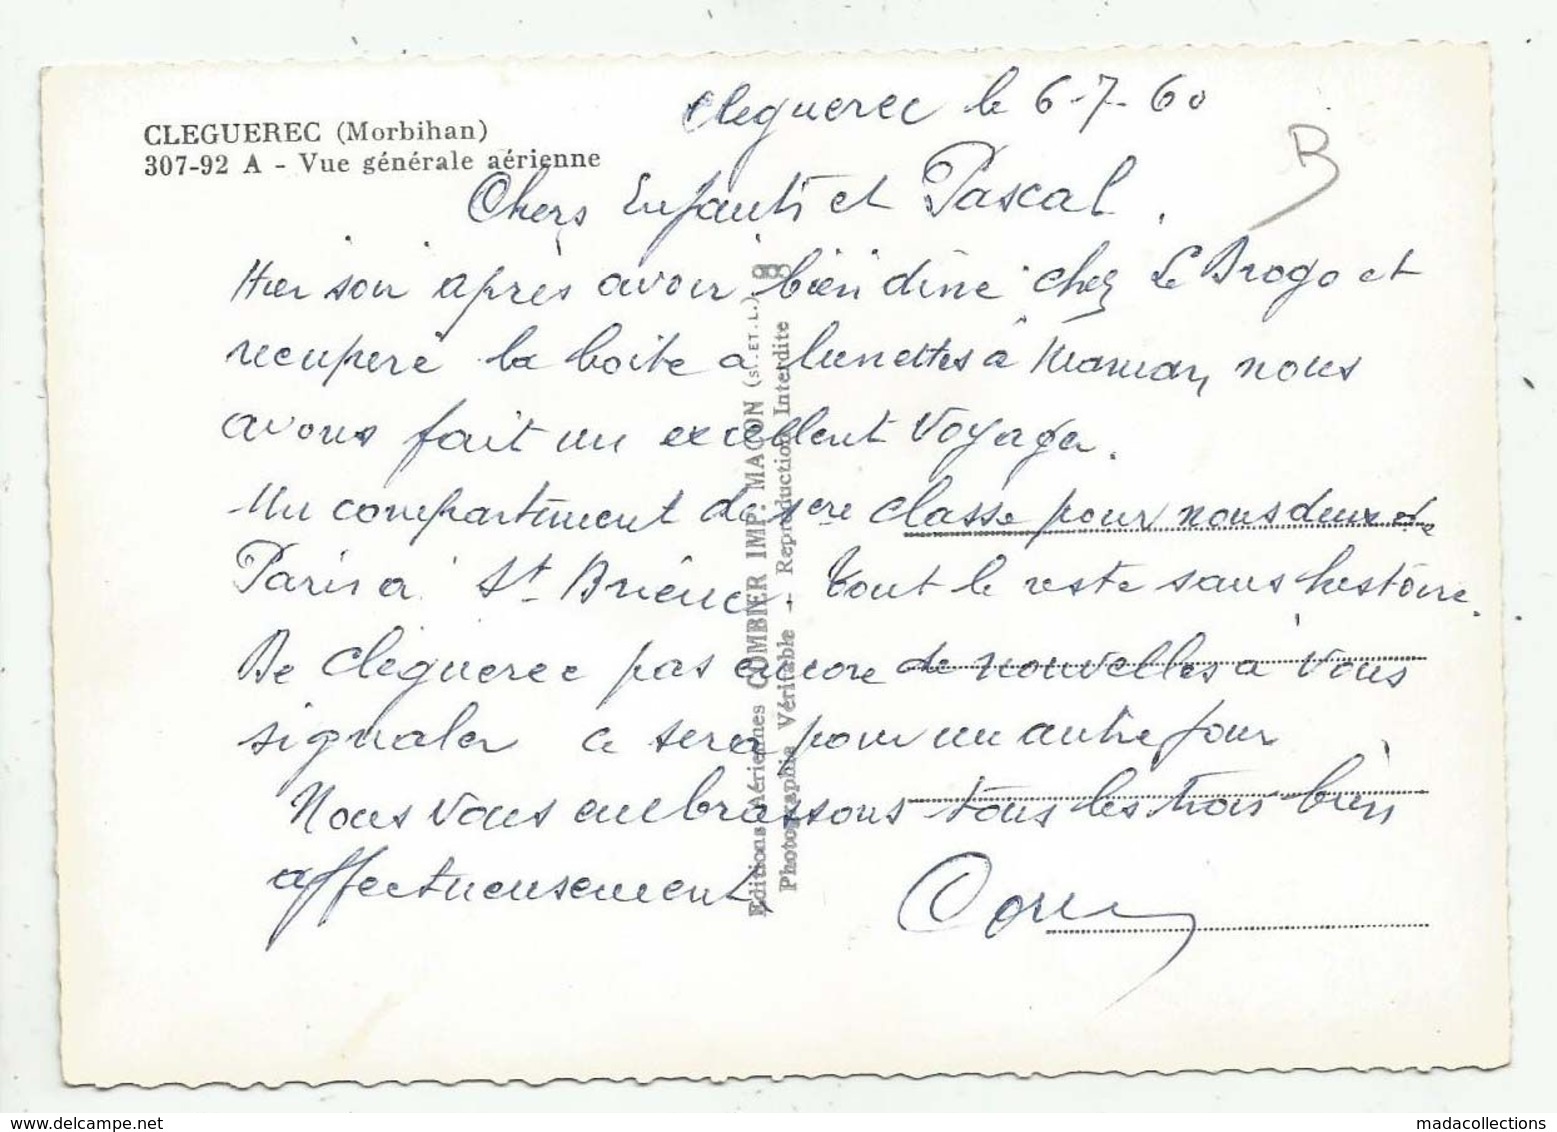 CLEGUEREC (Morbihan)
307-92 A - Vue générale aérienne
Cleguerec le 6-7-60
B
Chers Enfants et Pascal.
Hier soir après avoir bien diné chez Le Brogo et
recuperé la boite a lunettes à Maman, nous
avons fait un excellent voyage.
Un compartiment de 1ere classe pour nous deux de
Paris a St Brieuc. Tout le reste sans histoire.
De Cleguerec pas encore de nouvelles à vous
signaler ce sera pour un autre jour
Nous vous embrassons tous les trois bien
affectueusement
Editions Aériennes COMBIER IMP. MACON (S.-ET-L.)
Photographie Véritable - Reproduction Interdite
www.delcampe.net
madacollections